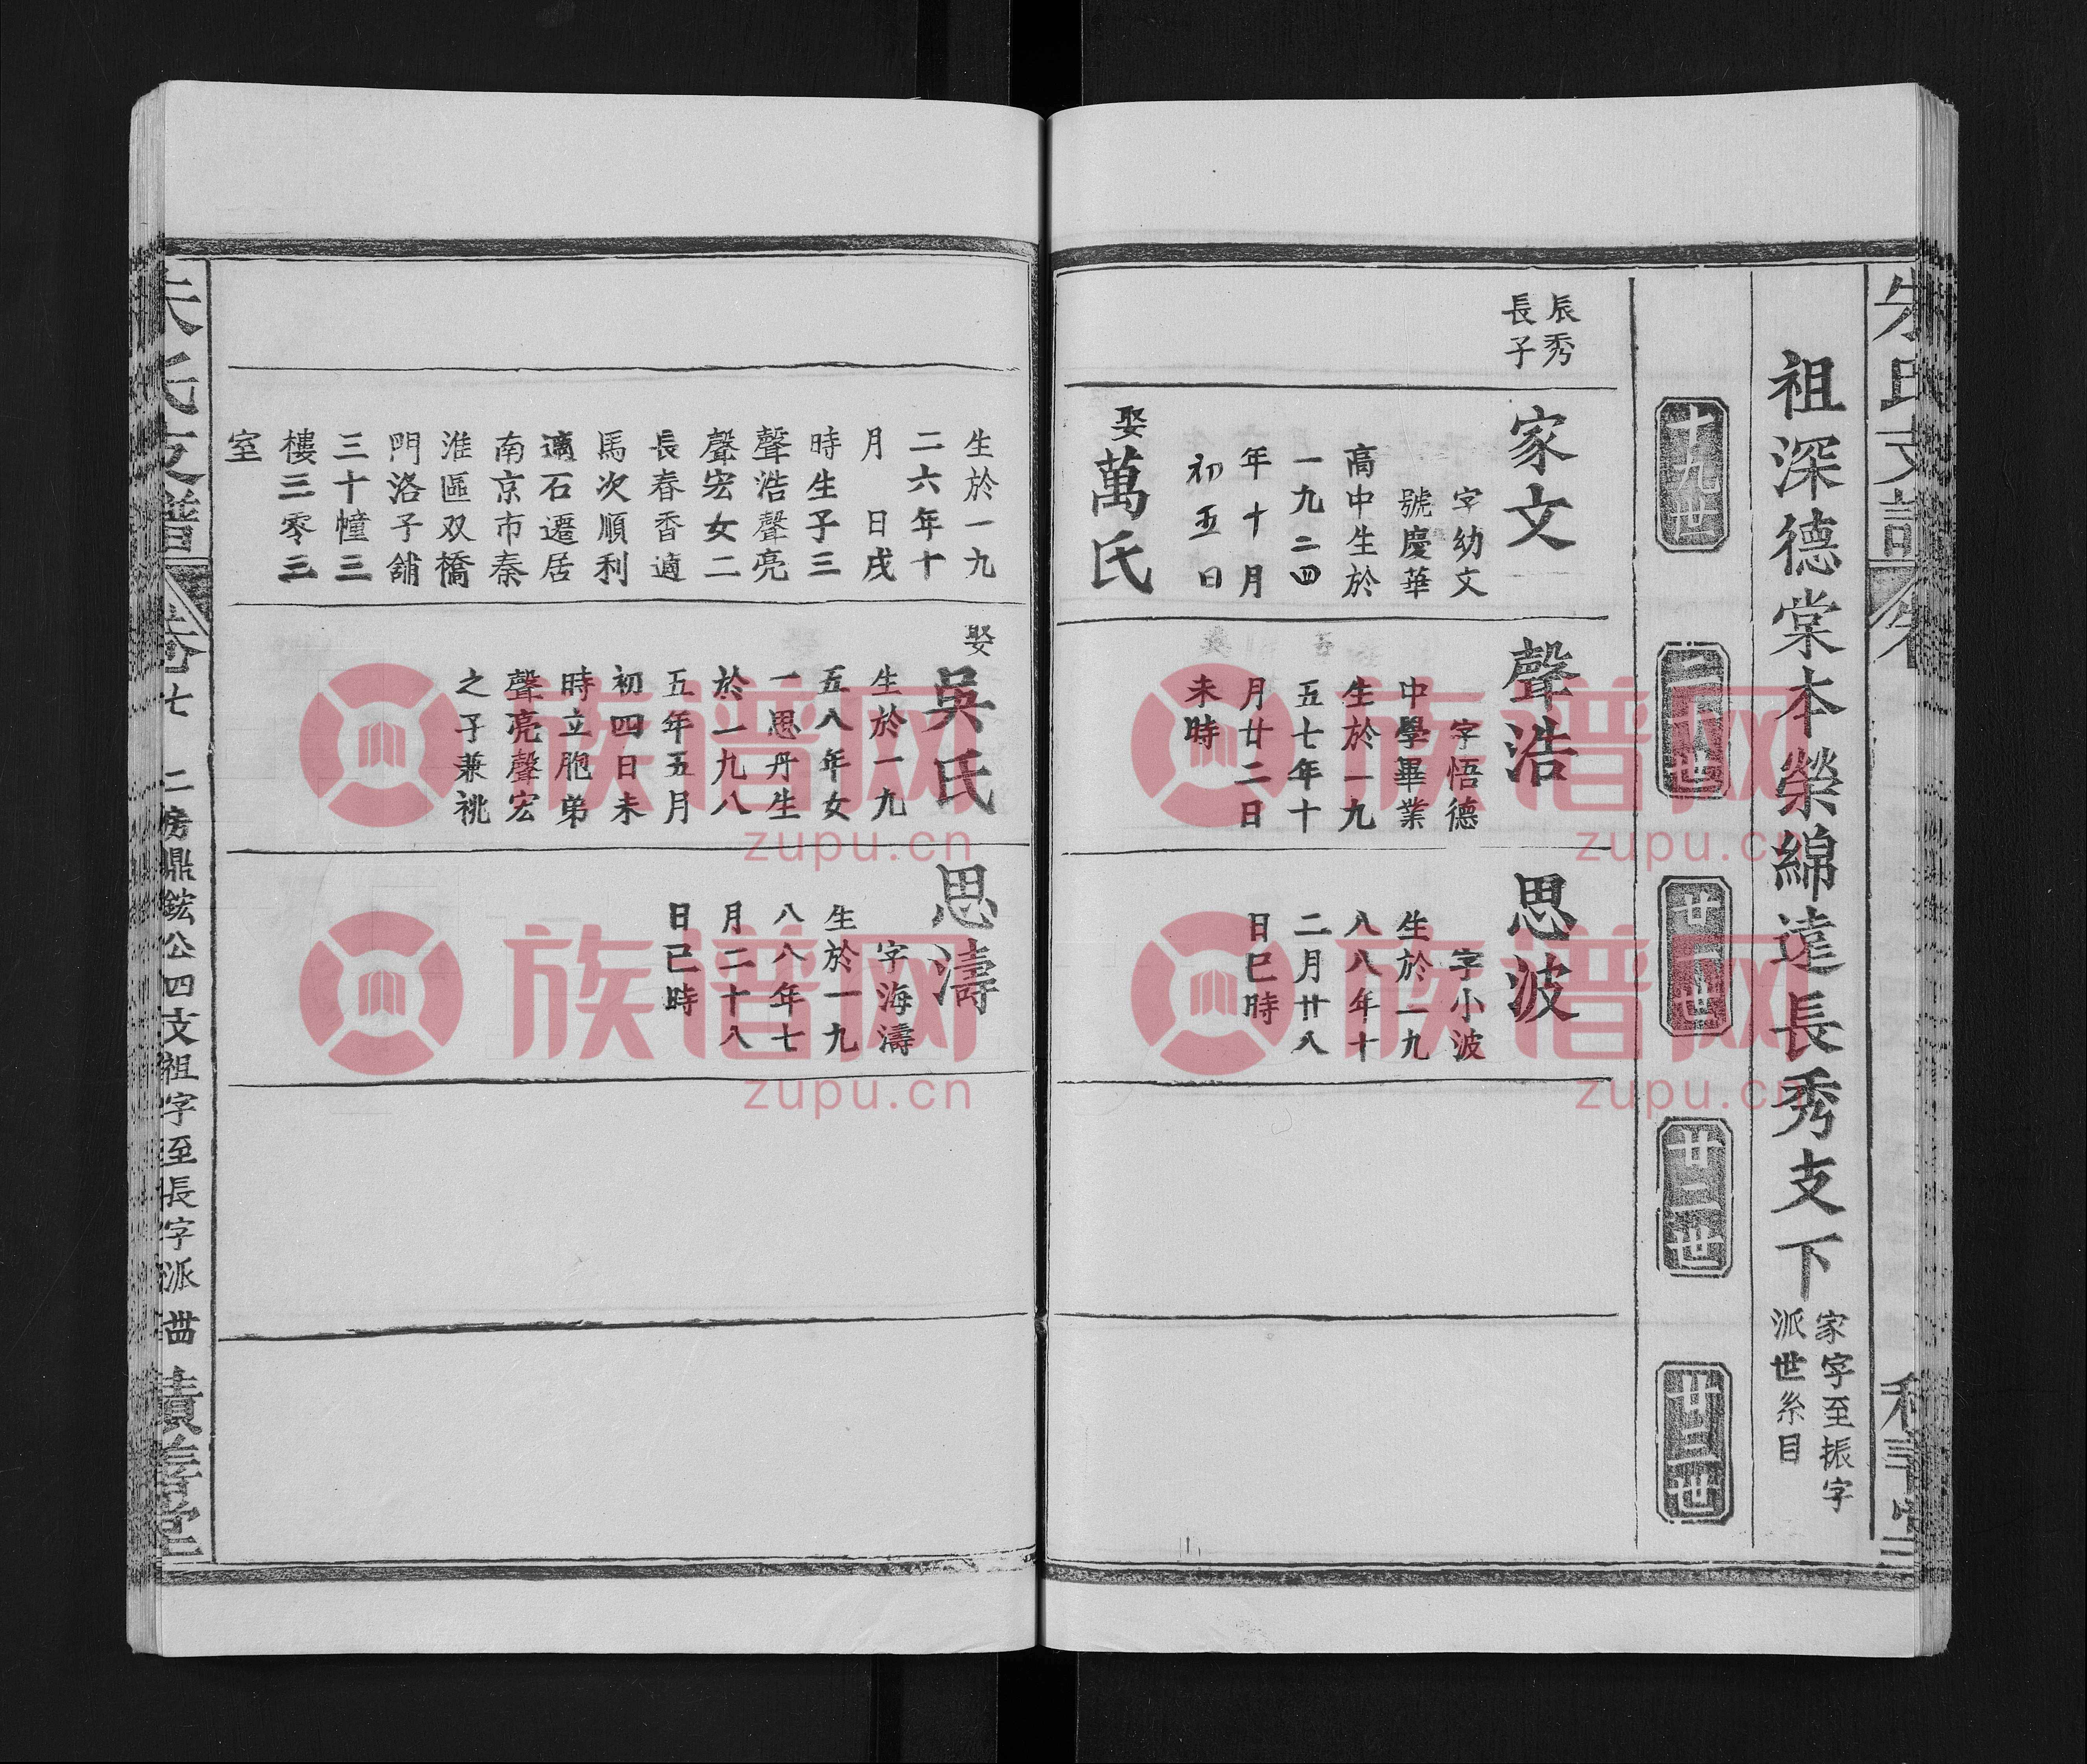 祖深德棠本榮綿遠長秀支下
家字至振字
派世系目
十九世
二十世
廿一世
廿二世
廿三世
辰秀
長子
家文
字幼文
號慶華
高中生於
一九二四
年十月
初五日
娶萬氏
聲浩
字悟德
中學畢業
生於一九
五七年十
月廿二日
未時
思波
字小波
生於一九
八八年十
二月廿八
日巳時
生於一九
二六年十
月 日戌
時生子三
聲浩聲亮
聲宏女二
長春香適
馬次順利
適石遷居
南京市秦
淮區双橋
門洛子舖
三十幢三
樓三零三
室
娶吳氏
生於一九
五八年女
一思丹生
於一九八
五年五月
初四日未
時立胞弟
聲亮聲宏
之子兼祧
思濤
字海濤
生於一九
八八年七
月二十八
日巳時
朱氏支譜
卷七
二房鼎鋐公四文祖字至長字派
族谱网
zupu.cn
族谱网
zupu.cn
族谱网
zupu.cn
族谱网
zupu.cn